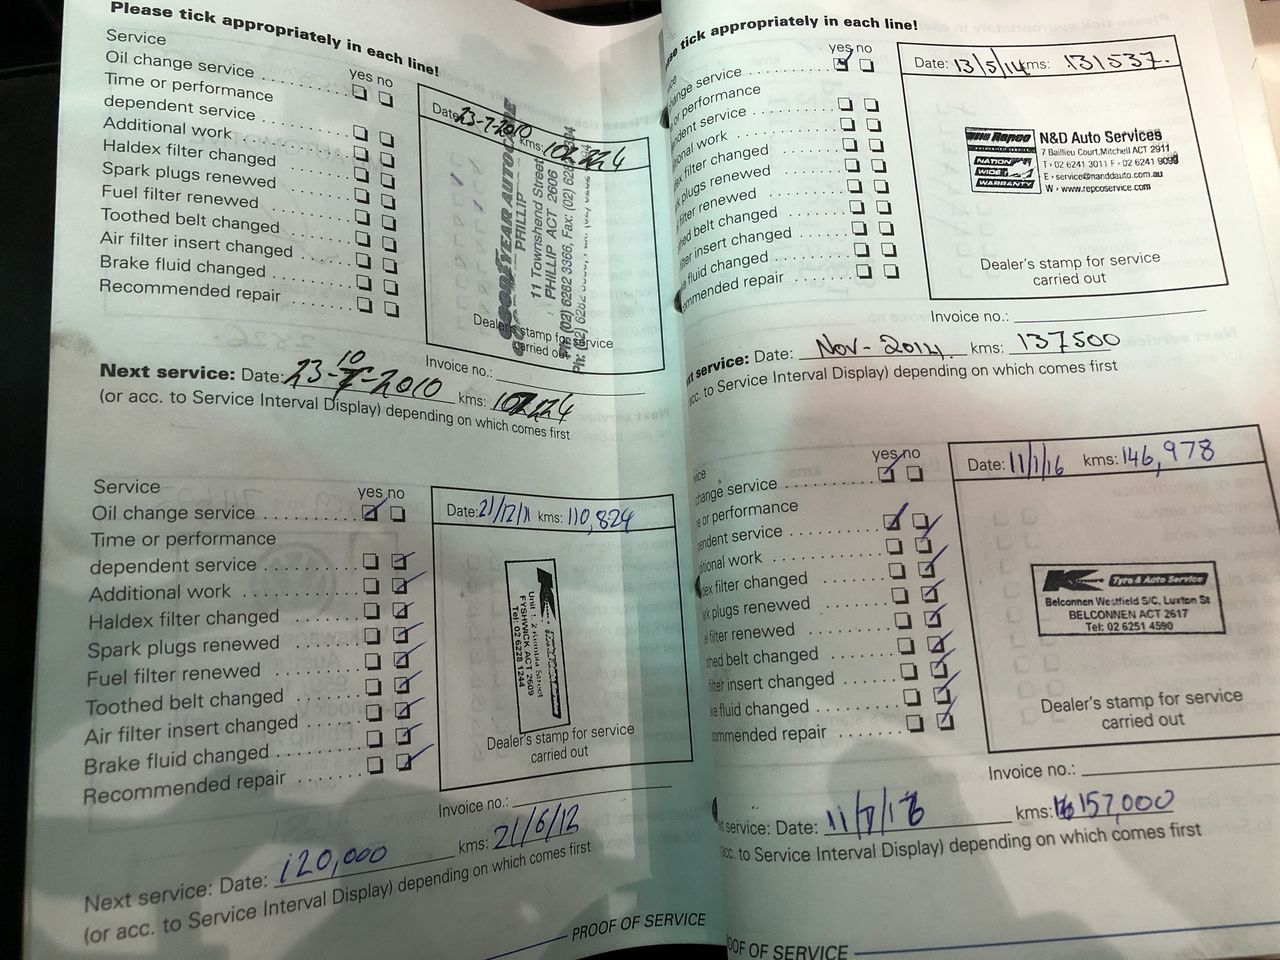 Please tick appropriately in each line!
Service
yes no
Oil change service
Time or performance
dependent service
Additional work
Haldex filter changed
Spark plugs renewed
Fuel filter renewed
Toothed belt changed
Air filter insert changed
Brake fluid changed
Recommended repair
Date: 23-7-2010 kms:
GOODYEAR AUTOCARE
PHILLIP
11 Townshend Street
PHILLIP ACT 2606
Ph: (02) 6282 3366, Fax: (02)
Dealer's stamp for service
carried out
Invoice no.:
Next service: Date: 23-10-2010 kms:
(or acc. to Service Interval Display) depending on which comes first
Service
yes no
Oil change service
Time or performance
dependent service
Additional work
Haldex filter changed
Spark plugs renewed
Fuel filter renewed
Toothed belt changed
Air filter insert changed
Brake fluid changed
Recommended repair
Date: 21/12/11 kms: 110,824
FYSHWICK ACT 2609
Tel: 02 6228 1244
Dealer's stamp for service
carried out
Invoice no.:
Next service: Date: 120,000 kms: 21/6/12
(or acc. to Service Interval Display) depending on which comes first
PROOF OF SERVICE
tick appropriately in each line!
yes no
change service
or performance
service
work
filter changed
plugs renewed
filter renewed
belt changed
insert changed
fluid changed
repair
Date: 13/5/14 kms: 131537.
Repco
AUTHORISED SERVICE
NATION
WIDE
WARRANTY
N&D Auto Services
7 Baillieu Court, Mitchell ACT 2911
T • 02 6241 3011 F • 02 6241 9093
E • service@nanddauto.com.au
W • www.repcoservice.com
Dealer's stamp for service
carried out
Invoice no.:
service: Date: Nov - 2014 kms: 137500
acc. to Service Interval Display) depending on which comes first
yes no
service
or performance
service
work
filter changed
plugs renewed
filter renewed
belt changed
insert changed
fluid changed
repair
Date: 11/1/16 kms: 146,978
Tyre & Auto Service
Belconnen Westfield S/C, Luxton St
BELCONNEN ACT 2617
Tel: 02 6251 4590
Dealer's stamp for service
carried out
Invoice no.:
service: Date: kms: 157,000
acc. to Service Interval Display) depending on which comes first
OF SERVICE